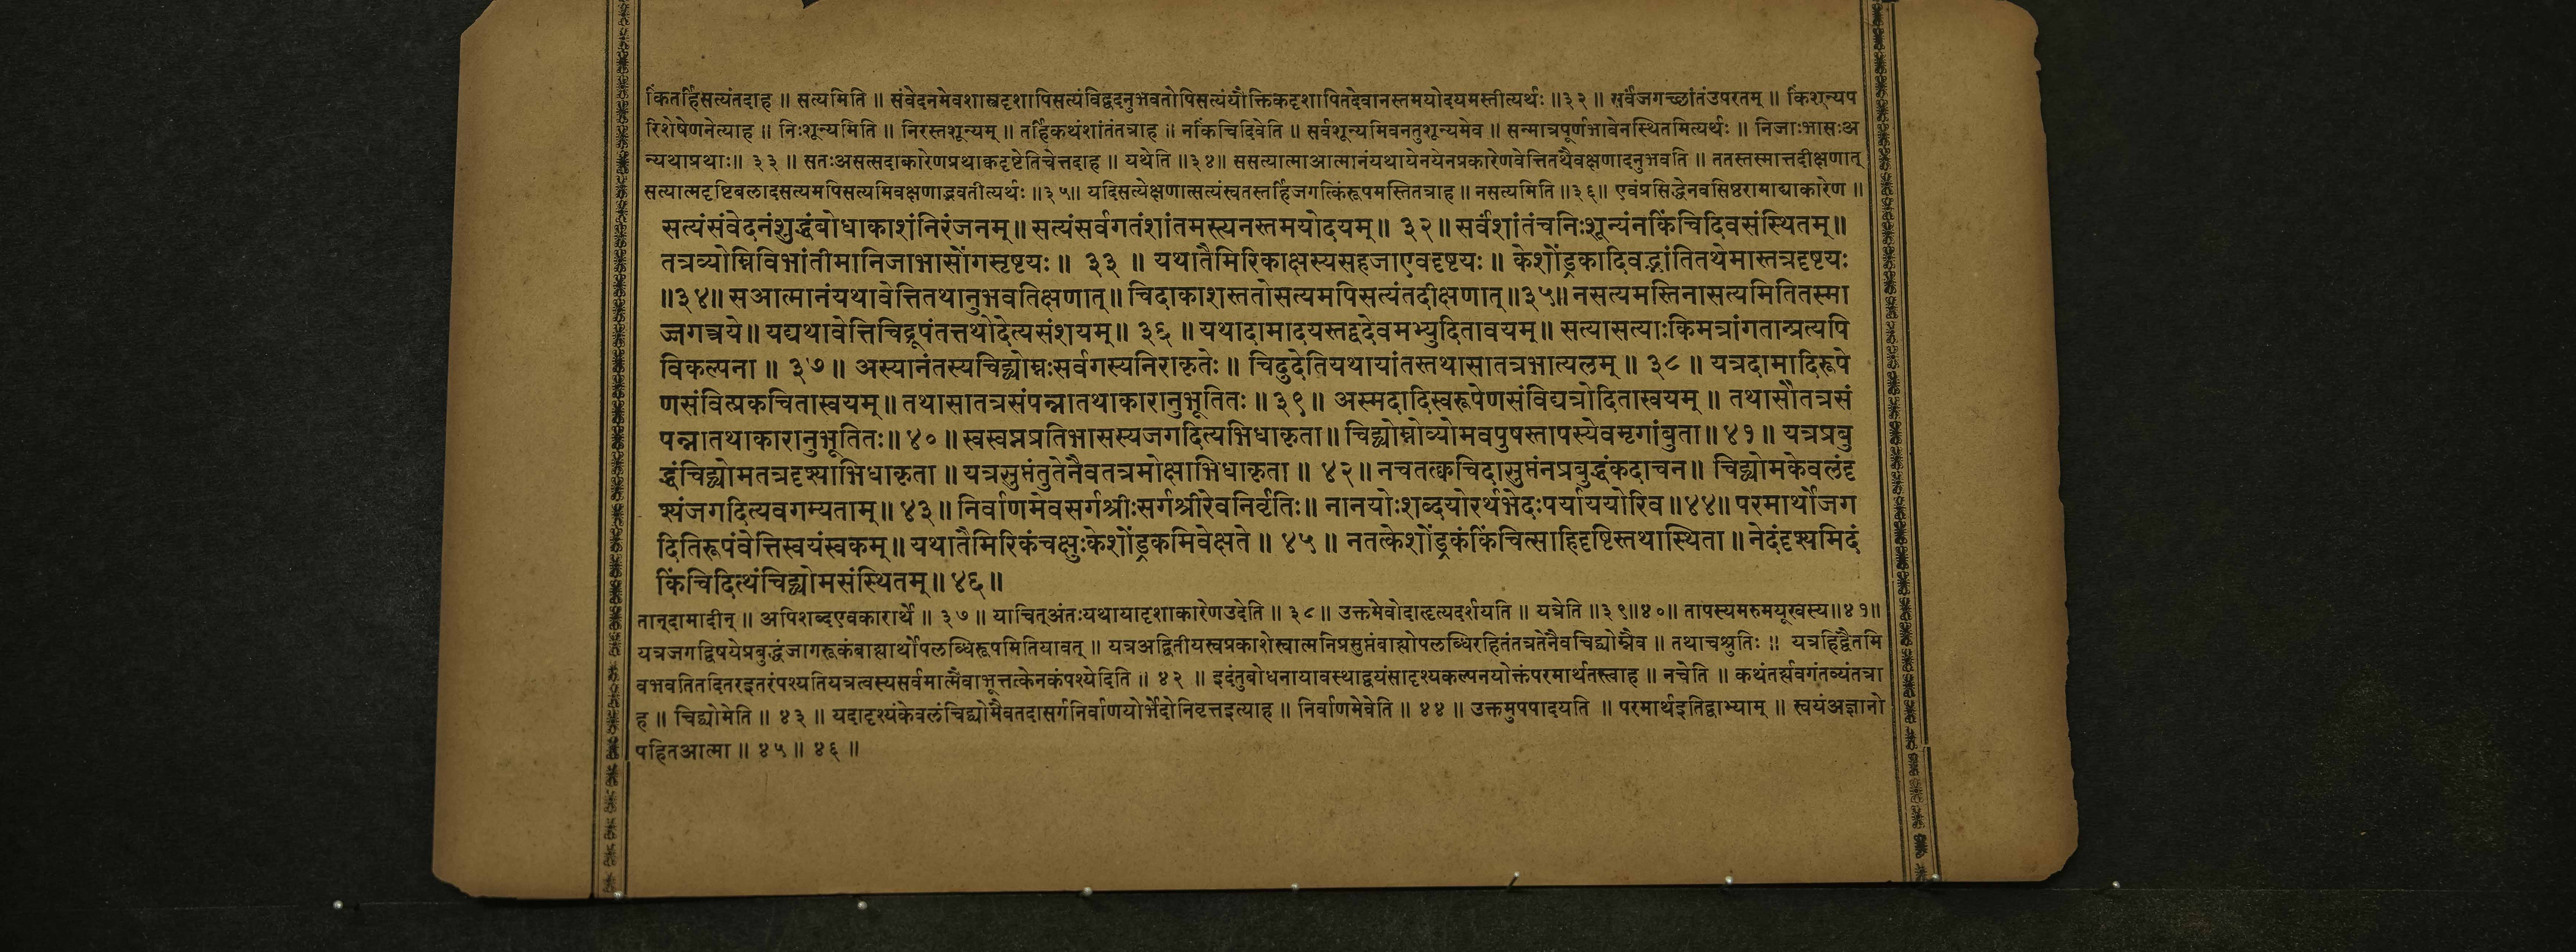 किंतर्हिसत्यंतदाह ॥ सत्यमिति ॥ संवेदनमेवशास्त्रदृशापिसत्यंविद्वदनुभवतोपिसत्यंयौक्तिकदृशापितदेवानस्तमयोदयमस्तीत्यर्थः ॥३२॥ सर्वंजगच्छांतंउपरतम् ॥ किंशून्यप
रिशेषेणनेत्याह ॥ निःशून्यमिति ॥ निरस्तशून्यम् ॥ तर्हिकथंशांतंतत्राह ॥ नकिंचिदिवेति ॥ सर्वशून्यमिवनतुशून्यमेव ॥ सन्मात्रपूर्णभावेनस्थितमित्यर्थः ॥ निजाःभासःअ
न्यथाप्रथाः॥ ३३ ॥ सतःअसत्सदाकारेणप्रथाक्वदृष्टेतिचेत्तदाह ॥ यथेति ॥३४॥ ससत्यात्माआत्मानंयथायेनयेनप्रकारेणवेत्तितथैवक्षणादनुभवति ॥ ततस्तस्मात्तदीक्षणात्
सत्यात्मदृष्टिबलादसत्यमपिसत्यमिवक्षणाद्भवतीत्यर्थः ॥३५॥ यदिसत्येक्षणात्सत्यंस्वतस्तर्हिजगत्किंरूपमस्तितत्राह ॥ नसत्यमिति ॥३६॥ एवंप्रसिद्धेनवसिष्ठरामाद्याकारेण ॥
सत्यंसंवेदनंशुद्धंबोधाकाशंनिरंजनम् ॥ सत्यंसर्वगतंशांतमस्त्यनस्तमयोदयम् ॥ ३२ ॥ सर्वंशांतंचनिःशून्यंनकिंचिदिवसंस्थितम् ॥
तत्रव्योम्निविभांतीमानिजाभासोंगसृष्टयः ॥ ३३ ॥ यथातैमिरिकाक्षस्यसहजाएवदृष्टयः ॥ केशोंड्रकादिवद्भांतितथेमास्तत्रदृष्टयः
॥३४॥ सआत्मानंयथावेत्तितथानुभवतिक्षणात् ॥ चिदाकाशस्ततोसत्यमपिसत्यंतदीक्षणात् ॥३५॥ नसत्यमस्तिनासत्यमितितस्मा
ज्जगत्त्रये ॥ यद्यथावेत्तिचिद्रूपंतत्तथोदेत्यसंशयम् ॥ ३६ ॥ यथादामादयस्तद्वदेवमभ्युदितावयम् ॥ सत्यासत्याःकिमत्रांगतान्प्रत्यपि
विकल्पना ॥ ३७ ॥ अस्यानंतस्यचिद्व्योम्नःसर्वगस्यनिराकृतेः ॥ चिदुदेतियथायांतस्तथासातत्रभात्यलम् ॥ ३८ ॥ यत्रदामादिरूपे
णसंवित्प्रकचितास्वयम् ॥ तथासातत्रसंपन्नातथाकारानुभूतितः ॥ ३९ ॥ अस्मदादिस्वरूपेणसंविद्यत्रोदितास्वयम् ॥ तथासौतत्रसं
पन्नातथाकारानुभूतितः ॥ ४० ॥ स्वस्वप्नप्रतिभासस्यजगदित्यभिधाकृता ॥ चिद्व्योम्नोव्योमवपुषस्तापस्येवमृगांबुता ॥ ४१ ॥ यत्रप्रबु
द्धंचिद्व्योमतत्रदृश्याभिधाकृता ॥ यत्रसुप्तंतुतेनैवतत्रमोक्षाभिधाकृता ॥ ४२ ॥ नचतत्क्वचिदासुप्तंनप्रबुद्धंकदाचन ॥ चिद्व्योमकेवलंदृ
श्यंजगदित्यवगम्यताम् ॥ ४३ ॥ निर्वाणमेवसर्गश्रीःसर्गश्रीरेवनिर्वृतिः ॥ नानयोःशब्दयोरर्थभेदःपर्याययोरिव ॥४४॥ परमार्थोजग
दितिरूपंवेत्तिस्वयंस्वकम् ॥ यथातैमिरिकंचक्षुःकेशोंड्रकमिवेक्षते ॥ ४५ ॥ नतत्केशोंड्रकंकिंचित्साहिदृष्टिस्तथास्थिता ॥ नेदंदृश्यमिदं
किंचिदित्थंचिद्व्योमसंस्थितम् ॥ ४६ ॥
तान्दामादीन् ॥ अपिशब्दएवकारार्थे ॥ ३७ ॥ याचित्अंतःयथायादृशाकारेणउदेति ॥ ३८ ॥ उक्तमेवोदाहृत्यदर्शयति ॥ यत्रेति ॥३९॥४०॥ तापस्यमरुमयूखस्य॥४१॥
यत्रजगद्विषयेप्रबुद्धंजागरूकंबाह्यार्थोपलब्धिरूपमितियावत् ॥ यत्रअद्वितीयस्वप्रकाशेस्वात्मनिप्रसुप्तंबाह्योपलब्धिरहितंतत्रतेनैवचिद्व्योम्नैव ॥ तथाचश्रुतिः ॥ यत्रहिद्वैतमि
वभवतितदितरइतरंपश्यतियत्रत्वस्यसर्वमात्मैवाभूत्तत्केनकंपश्येदिति ॥ ४२ ॥ इदंतुबोधनायावस्थाद्वयंसादृश्यकल्पनयोक्तंपरमार्थतस्त्वाह ॥ नचेति ॥ कथंतर्ह्यवगंतव्यंतत्रा
ह ॥ चिद्व्योमेति ॥ ४३ ॥ यदादृश्यंकेवलंचिद्व्योमैवतदासर्गनिर्वाणयोर्भेदोनिवृत्तइत्याह ॥ निर्वाणमेवेति ॥ ४४ ॥ उक्तमुपपादयति ॥ परमार्थइतिद्वाभ्याम् ॥ स्वयंअज्ञानो
पहितआत्मा ॥ ४५ ॥ ४६ ॥